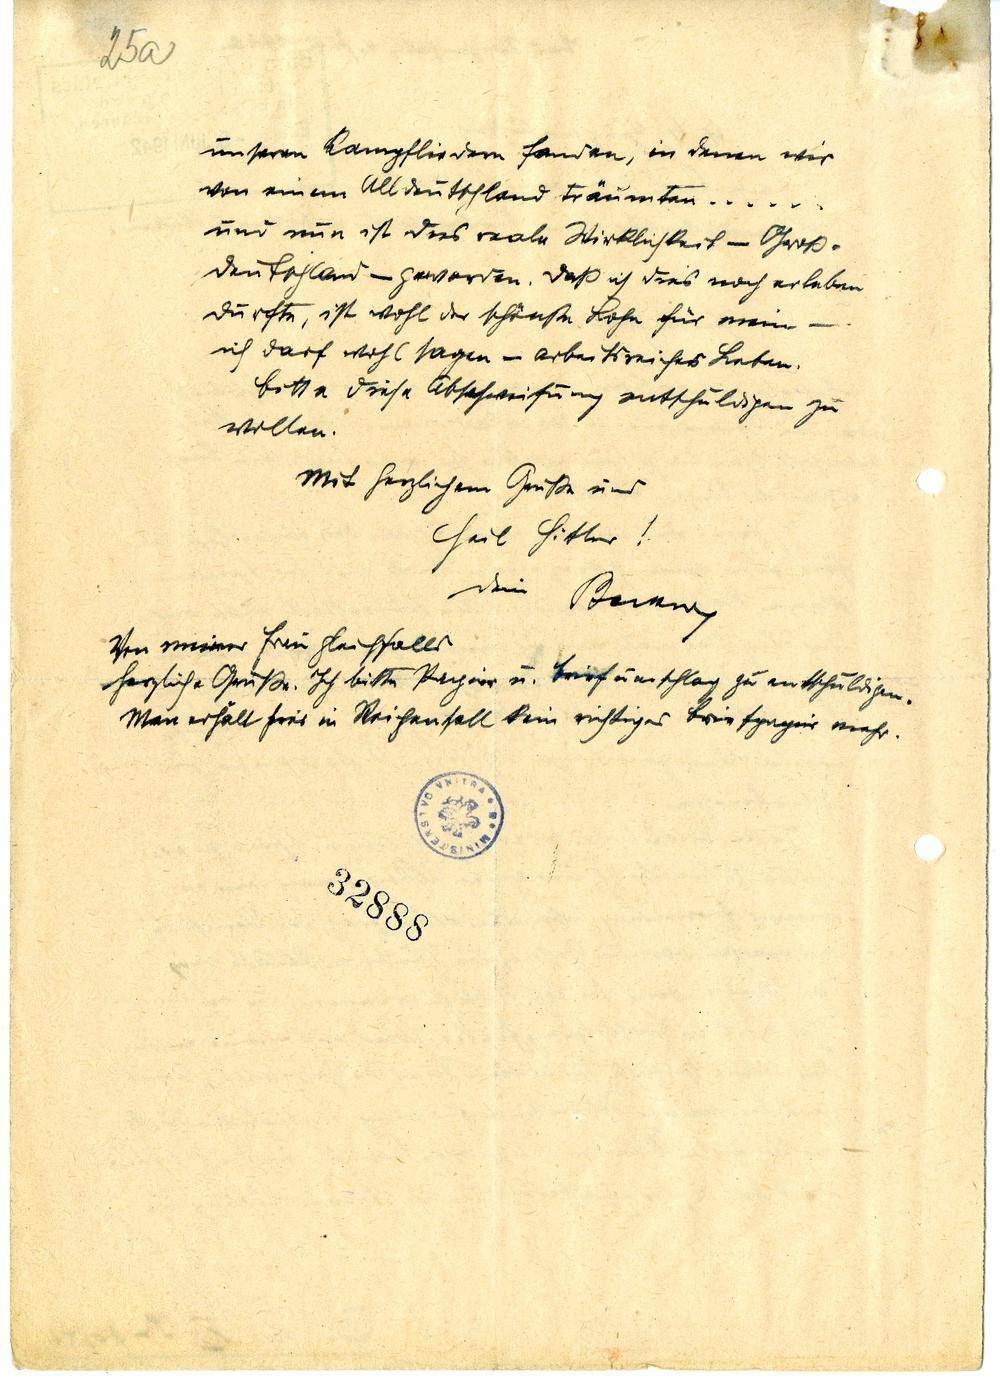 25a
unseren Kampfliedern fanden, in denen wir
von einem Alldeutschland träumten . . . . . .
und nun ist dies reale Wirklichkeit – Groß-
deutschland – geworden. Daß ich dies noch erleben
durfte, ist wohl der schönste Lohn für mein –
ich darf wohl sagen – arbeitsreiches Leben.
Bitte diese Abschweifung entschuldigen zu
wollen.
Mit herzlichem Gruße und
Heil Hitler !
Dein
Von meiner Frau gleichfalls
herzliche Grüße. Ich bitte Papier u. Briefumschlag zu entschuldigen.
Man erhält hier in Reichenhall kein richtiges Briefpapier mehr.
MINISTERSTVO VNITRA
32888